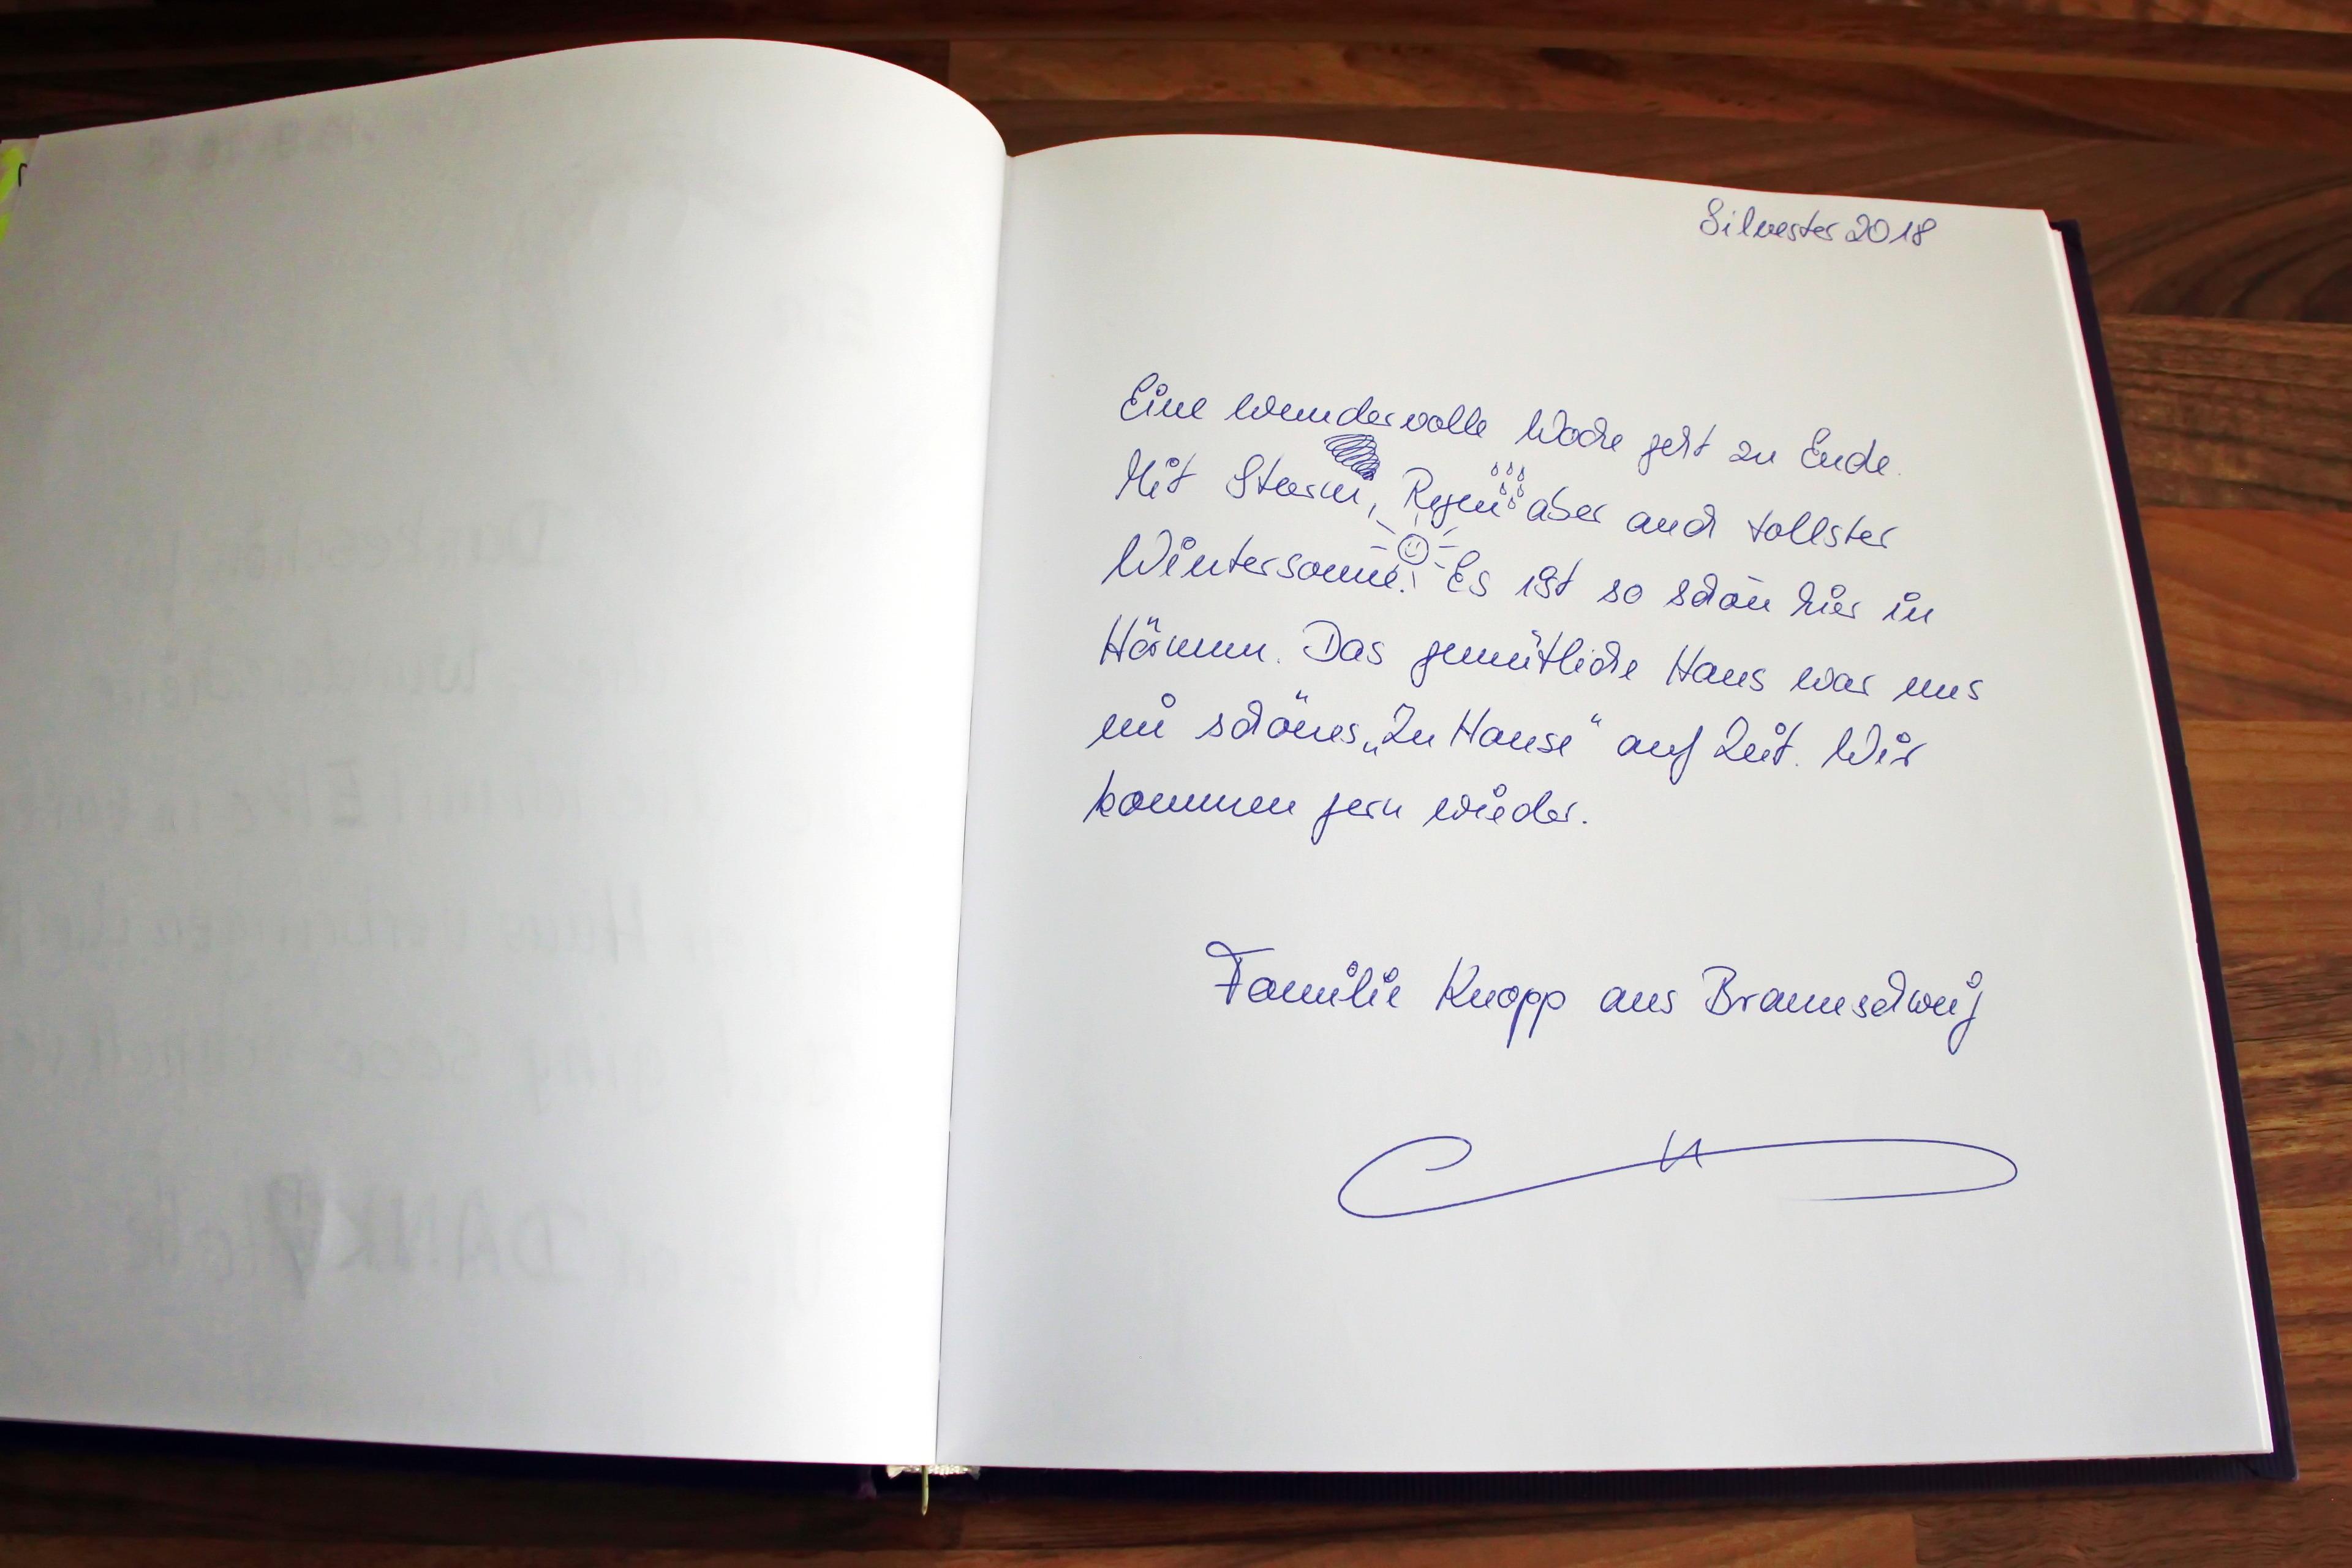 Silvester 2018
Eine wundervolle Woche geht zu Ende.
Mit Sturm, Regen aber auch tollster
Wintersonne. Es ist so schön hier in
Hörnum. Das gemütliche Haus war uns
ein schönes „Zu Hause“ auf Zeit. Wir
kommen gern wieder.
Familie Knopp aus Braunschweig